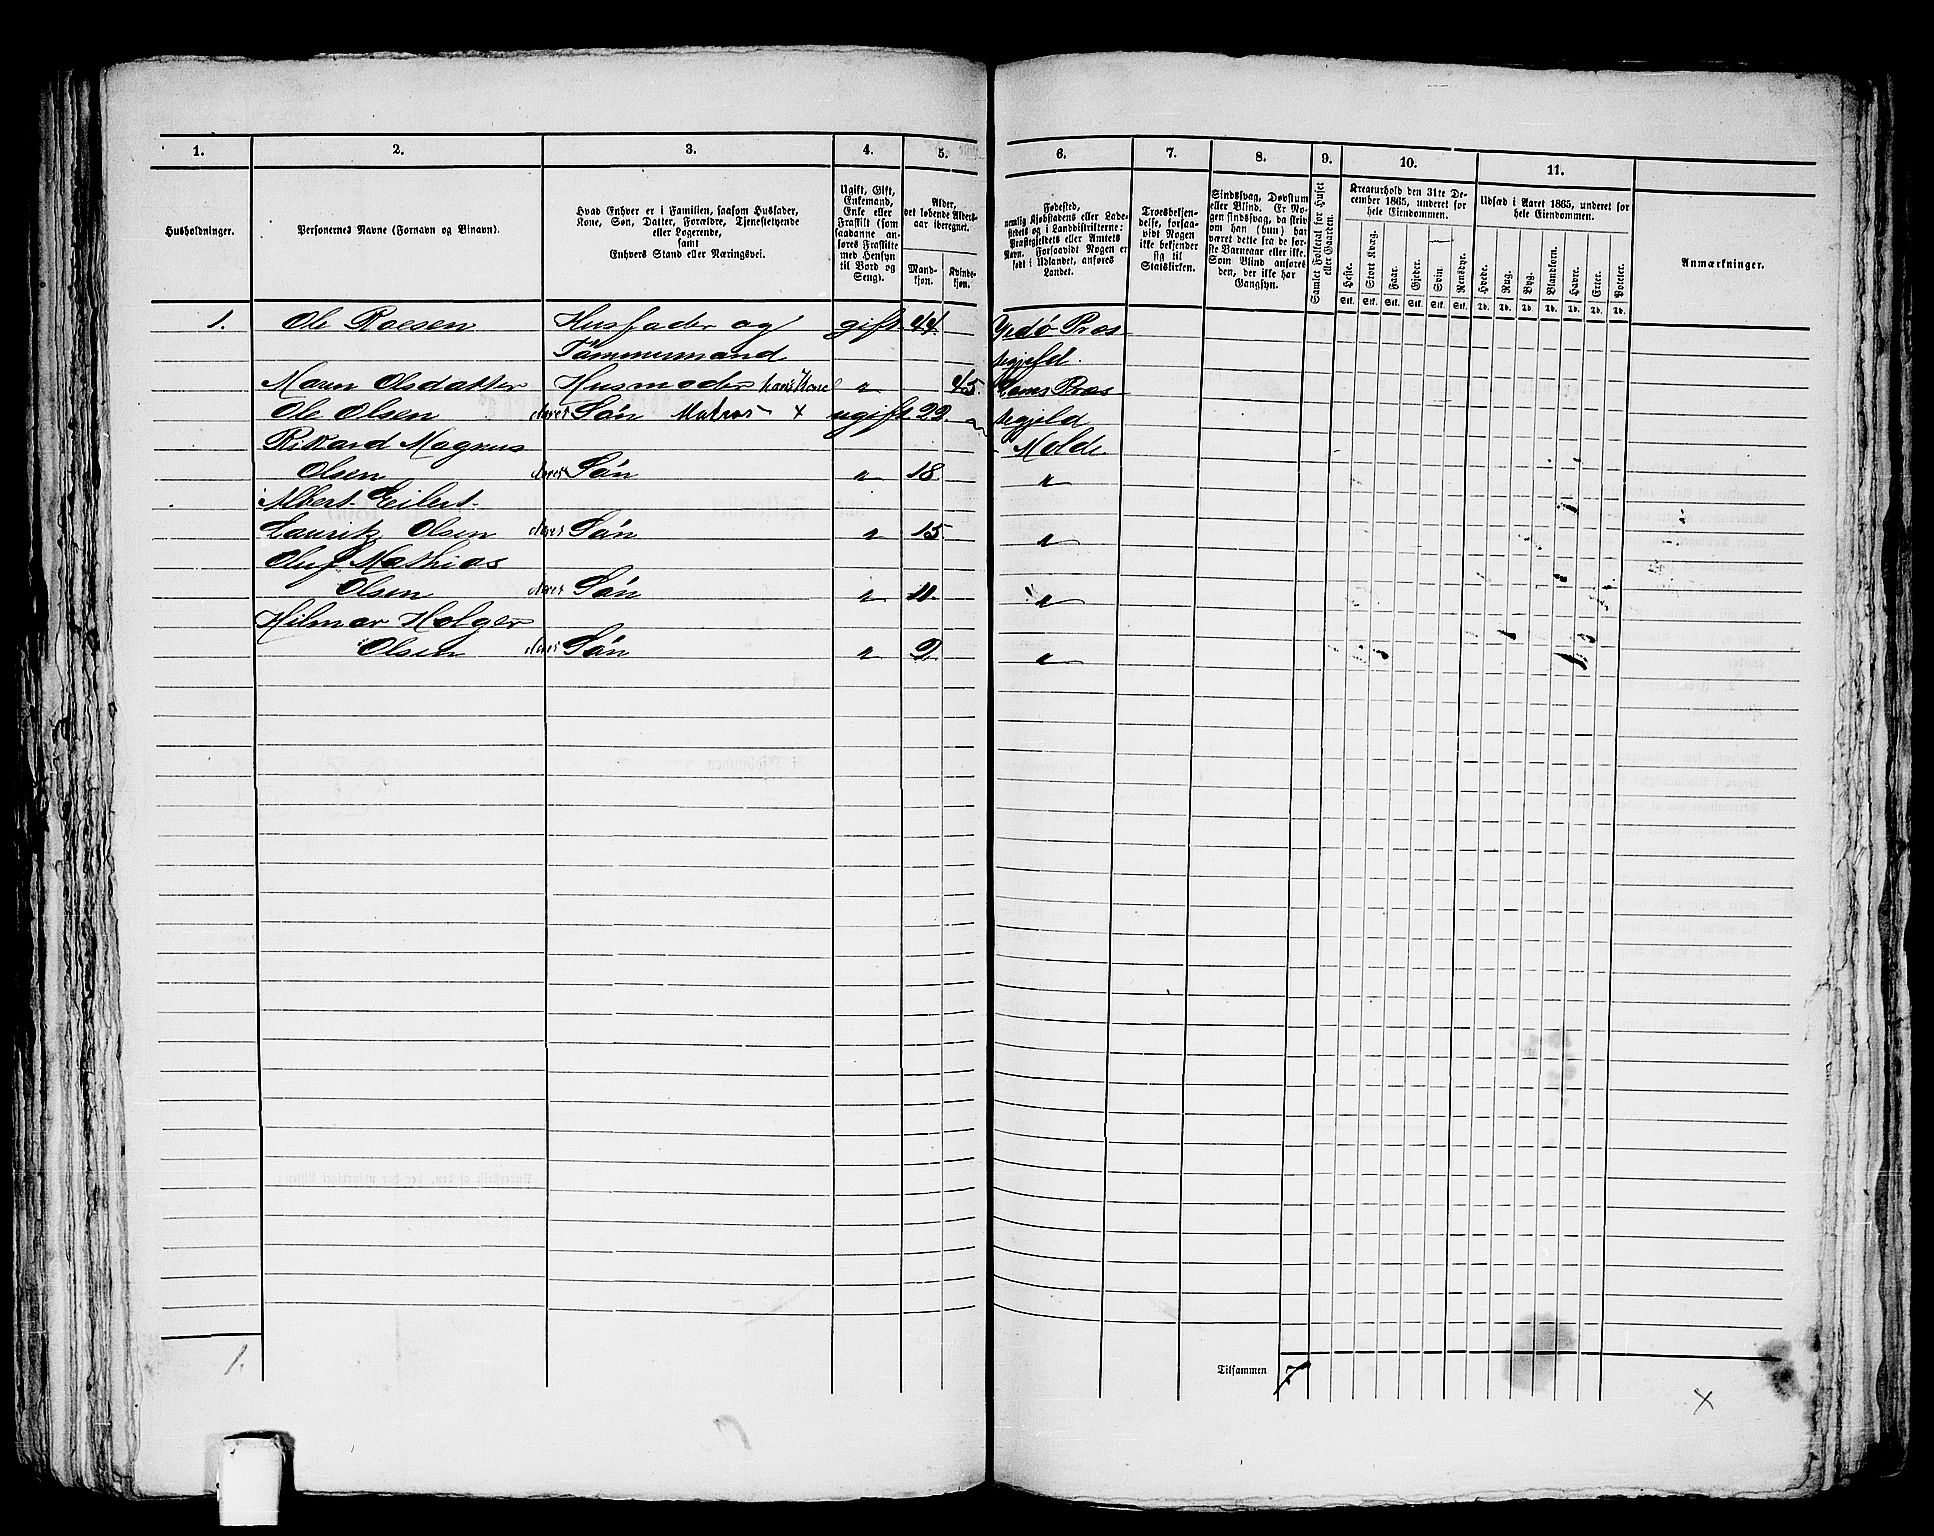 1. 2. 3. 4. 5. 6. 7. 8. 9. 10. 11.
Husholdninger.
Personernes Navne (Fornavn og Binavn).
Hvad Enhver er i Familien, saasom Husfader,
Kone, Søn, Datter, Forældre, Tjenestetyende
eller Logerende,
samt
Enhvers Stand eller Næringsvei.
Ugift, Gift,
Enkemand,
Enke eller
Fraskilt (som
saadanne an-
føres Fraskilte
med Hensyn
til Bord og
Seng).
Alder,
det løbende Alders-
aar iberegnet.
Mand-
kjøn.
Kvinde-
kjøn.
Fødested,
nemlig Kjøbstadens eller Lade-
stedets og i Landdistrikterne:
Præstegjeldets eller Amtets
Navn. Forsaavidt Nogen er
født i Udlandet, anføres
Landet.
Troesbekjen-
delse, forsaa-
vidt Nogen
ikke bekjender
sig til
Statskirken.
Sindssvag, Døvstum
eller Blind. Er No-
gen sindssvag, da skriv
om han (hun) har
været dette fra de før-
ste Barneaar eller ikke.
Som Blind anføres
den, der ikke har
Gangsyn.
Samlet Folketal for Huset
eller Gaarden.
Kreaturhold den 31te De-
cember 1865, underet for
hele Eiendommen.
Heste. Stort Kvæg. Faar. Gjeder. Svin. Rensdyr.
Stk. Stk. Stk. Stk. Stk. Stk.
Udsæd i Aaret 1865, underet for
hele Eiendommen.
Hvede. Rug. Byg. Blandkorn. Havre. Erter. Poteter.
Td. Td. Td. Td. Td. Td. Td.
Anmærkninger.
1. Ole Roesen Husfader og gift 44 Vedø Præs
Tømmermand tegjeld.
Maren Olsdatter Husmoder hans Kone " 45. Præs
Ole Olsen deres Søn Matros x ugift 22. tegjeld
Rikard Magnus Molde
Olsen deres Søn " 18. "
Albert Eilert
Lauritz Olsen deres Søn " 15 "
Oluf Mathias
Olsen deres Søn " 11. "
Hilmar Holger
Olsen deres Søn " 2 "
1.
Tilsammen 7
x